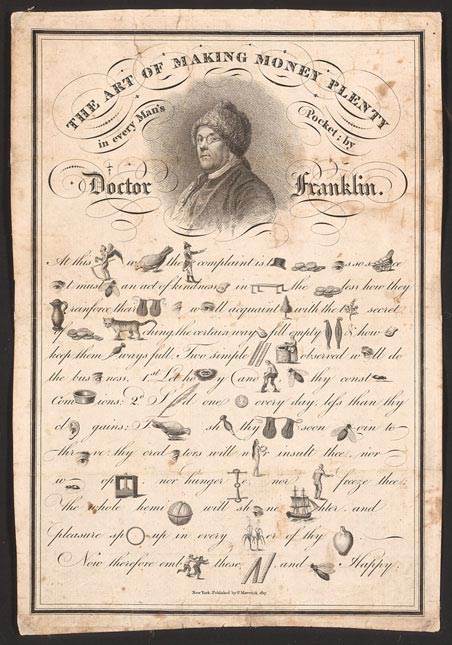 THE ART OF MAKING MONEY PLENTY
in every Man's Pocket; by
Doctor Franklin.
At this w the complaint is t s so s ce
t must an act of kindness n the less how they
reinforce their w ll acquaint with the t secret
ching, the certain way fill empty & how
keep them ways full. Two simple observed w ll do
the bus ness. 1st Let ho y thy const
Com ions: 2. S d one every day, less than thy
cl gains: T sh thy soon gin to
thr ve: thy cred tors will n insult thee: nor
w op nor hunger e, nor freeze thee:
The whole hemi will sh ne hter and
pleasure sp up in every er of thy
Now therefore emb these and Happy.
New York, Published by P. Maverick, 1817.